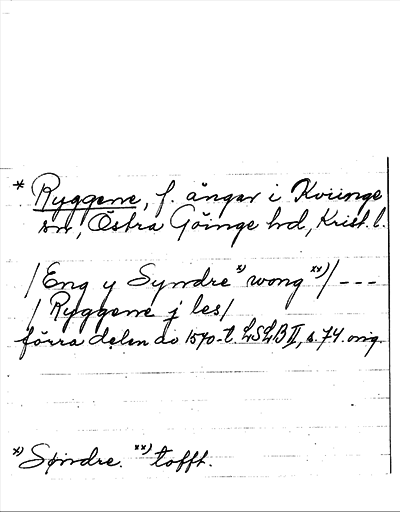 * Ryggerne, f. ängar i Kviinge
sn, Östra Göinge hd, Krist. l.
/ Eng y Syndre *) wong **) / ---
/ Ryggerne j les /
förra delen av 1570-t. LSLB II, s. 74 orig.
*) Søndre. **) tofft.